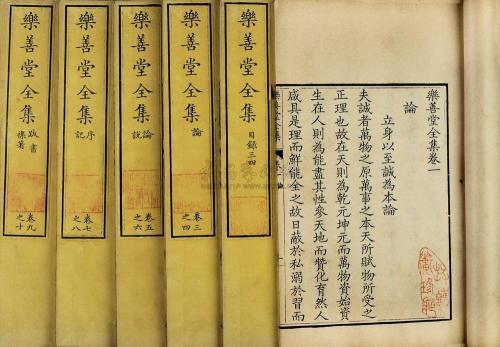 樂善堂全集卷一
論
立身以至誠為本論
夫誠者萬物之原萬事之本天所賦物所受之
正理也故在天則為乾元坤元而萬物資始資
生在人則為能盡其性參天地而贊化育然人
咸具是理而鮮能全之故日蔽於私溺於習而
樂善堂全集
目錄三四
樂善堂全集
論
卷三之四
樂善堂全集
論說
卷五之六
樂善堂全集
序記
卷七之八
樂善堂全集
跋書襍著
卷九之十